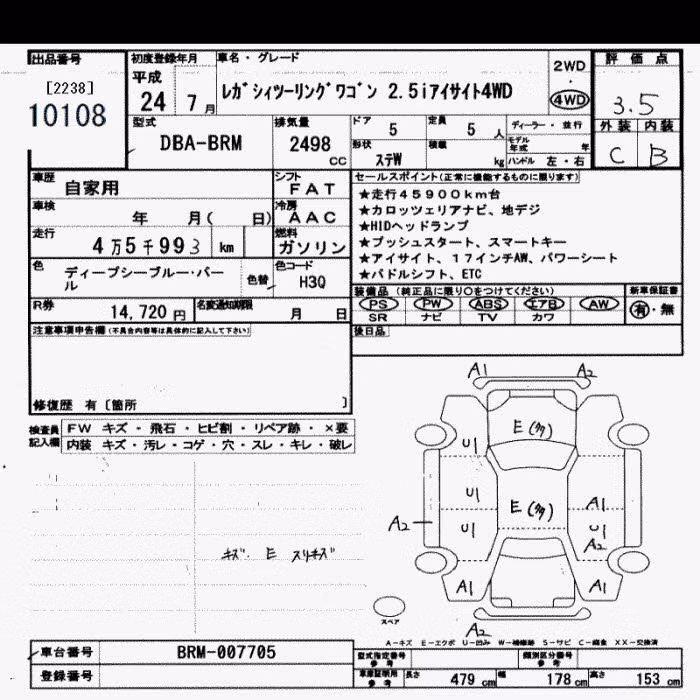 出品番号
[2238]
10108
初度登録年月
平成
24 7月
車名・グレード
レガシィツーリングワゴン 2.5iアイサイト4WD
2WD
・
4WD
評価点
3.5
外装 内装
C B
型式
DBA-BRM
排気量
2498
cc
ドア 5
定員 5 人
形状 ステW
積載 kg
ディーラー・並行
モデル年式 年
ハンドル 左・右
車歴 自家用
シフト FAT
車検 年 月( 日)
冷房 AAC
走行 4万5千993 km
燃料 ガソリン
色 ディープシーブルー・パール
色替
色コード H3Q
R券 14,720円
名変通知期限 月 日
セールスポイント(正常に機能するものに限ります)
★走行45900km台
★カロッツェリアナビ、地デジ
★HIDヘッドランプ
★プッシュスタート、スマートキー
★アイサイト、17インチAW、パワーシート
★パドルシフト、ETC
装備品(純正品に限り○をつけてください)
PS PW ABS エアB AW
SR ナビ TV カワ
新車保証書
有・無
後日品
注意事項申告欄(不具合内容等は具体的に記入して下さい)
修復歴 有〔箇所 〕
検査員記入欄
FW キズ・飛石・ヒビ割・リペア跡・×要
内装 キズ・汚レ・コゲ・穴・スレ・キレ・破レ
キズ・E スリキズ
A1 A2
E(多)
U1
U1
E(多)
A1
A2
U1
U1
A2
A1
A1
A2
スペア
A-キズ E-エクボ U-凹み W-補修跡 S-サビ C-腐食 XX-交換済
車台番号 BRM-007705
登録番号
型式指定番号 参考
類別区分番号 参考
車庫証明用 参考
長さ 479 cm 幅 178 cm 高さ 153 cm